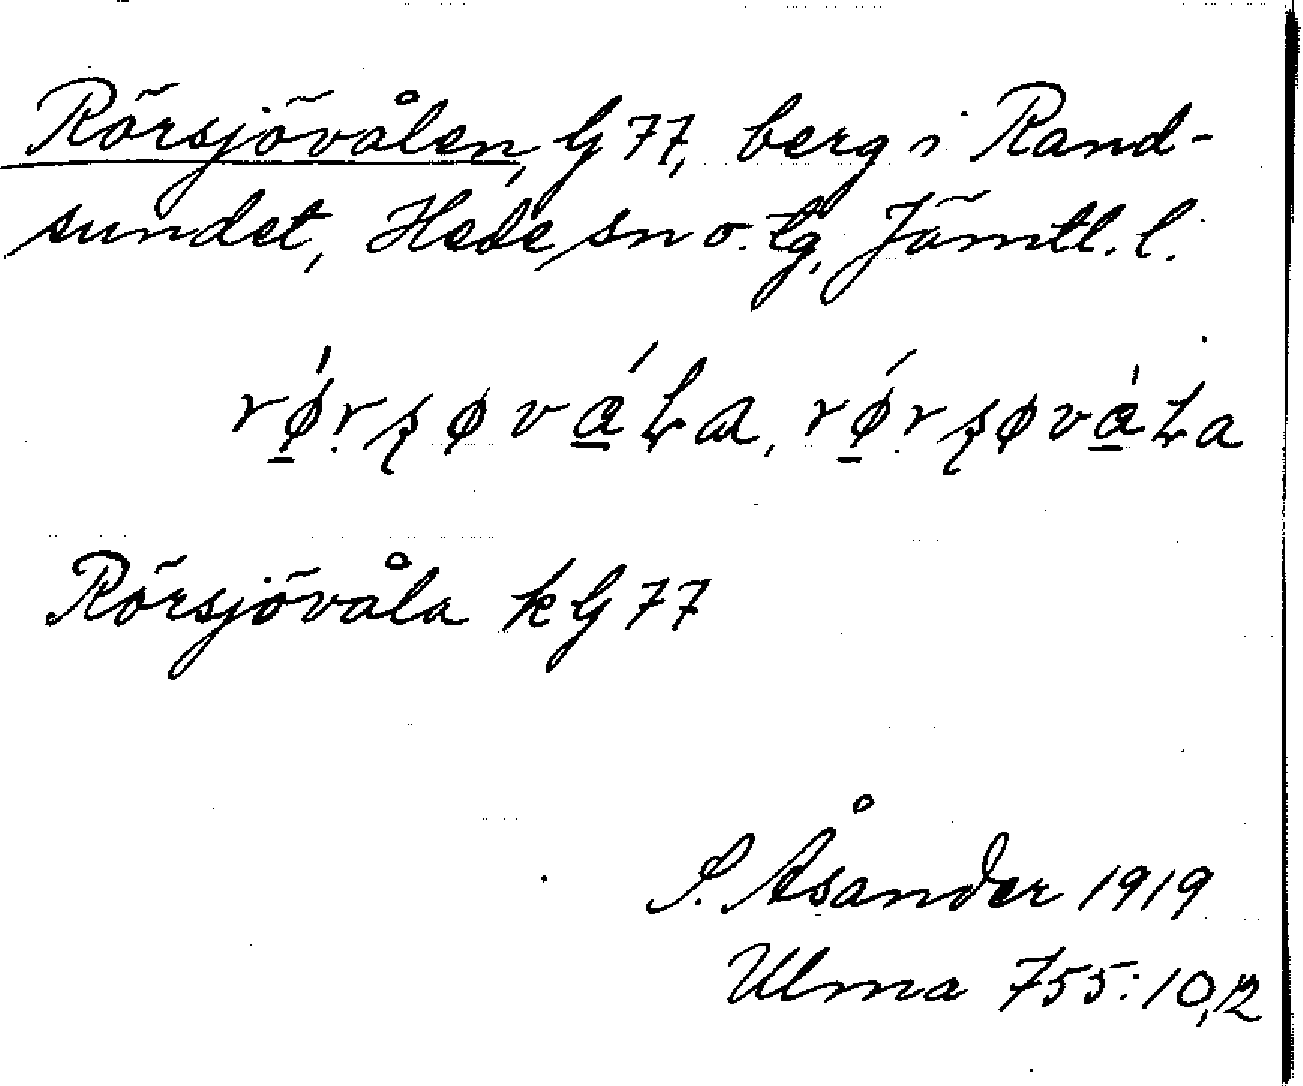 Rörsjövålen, G 77, berg i Rand-
sundet, Hede sn o. tg, Jämtl. l.
Rörsjövåla k G 77
S. Åsander 1919
Ulma 755:10,12